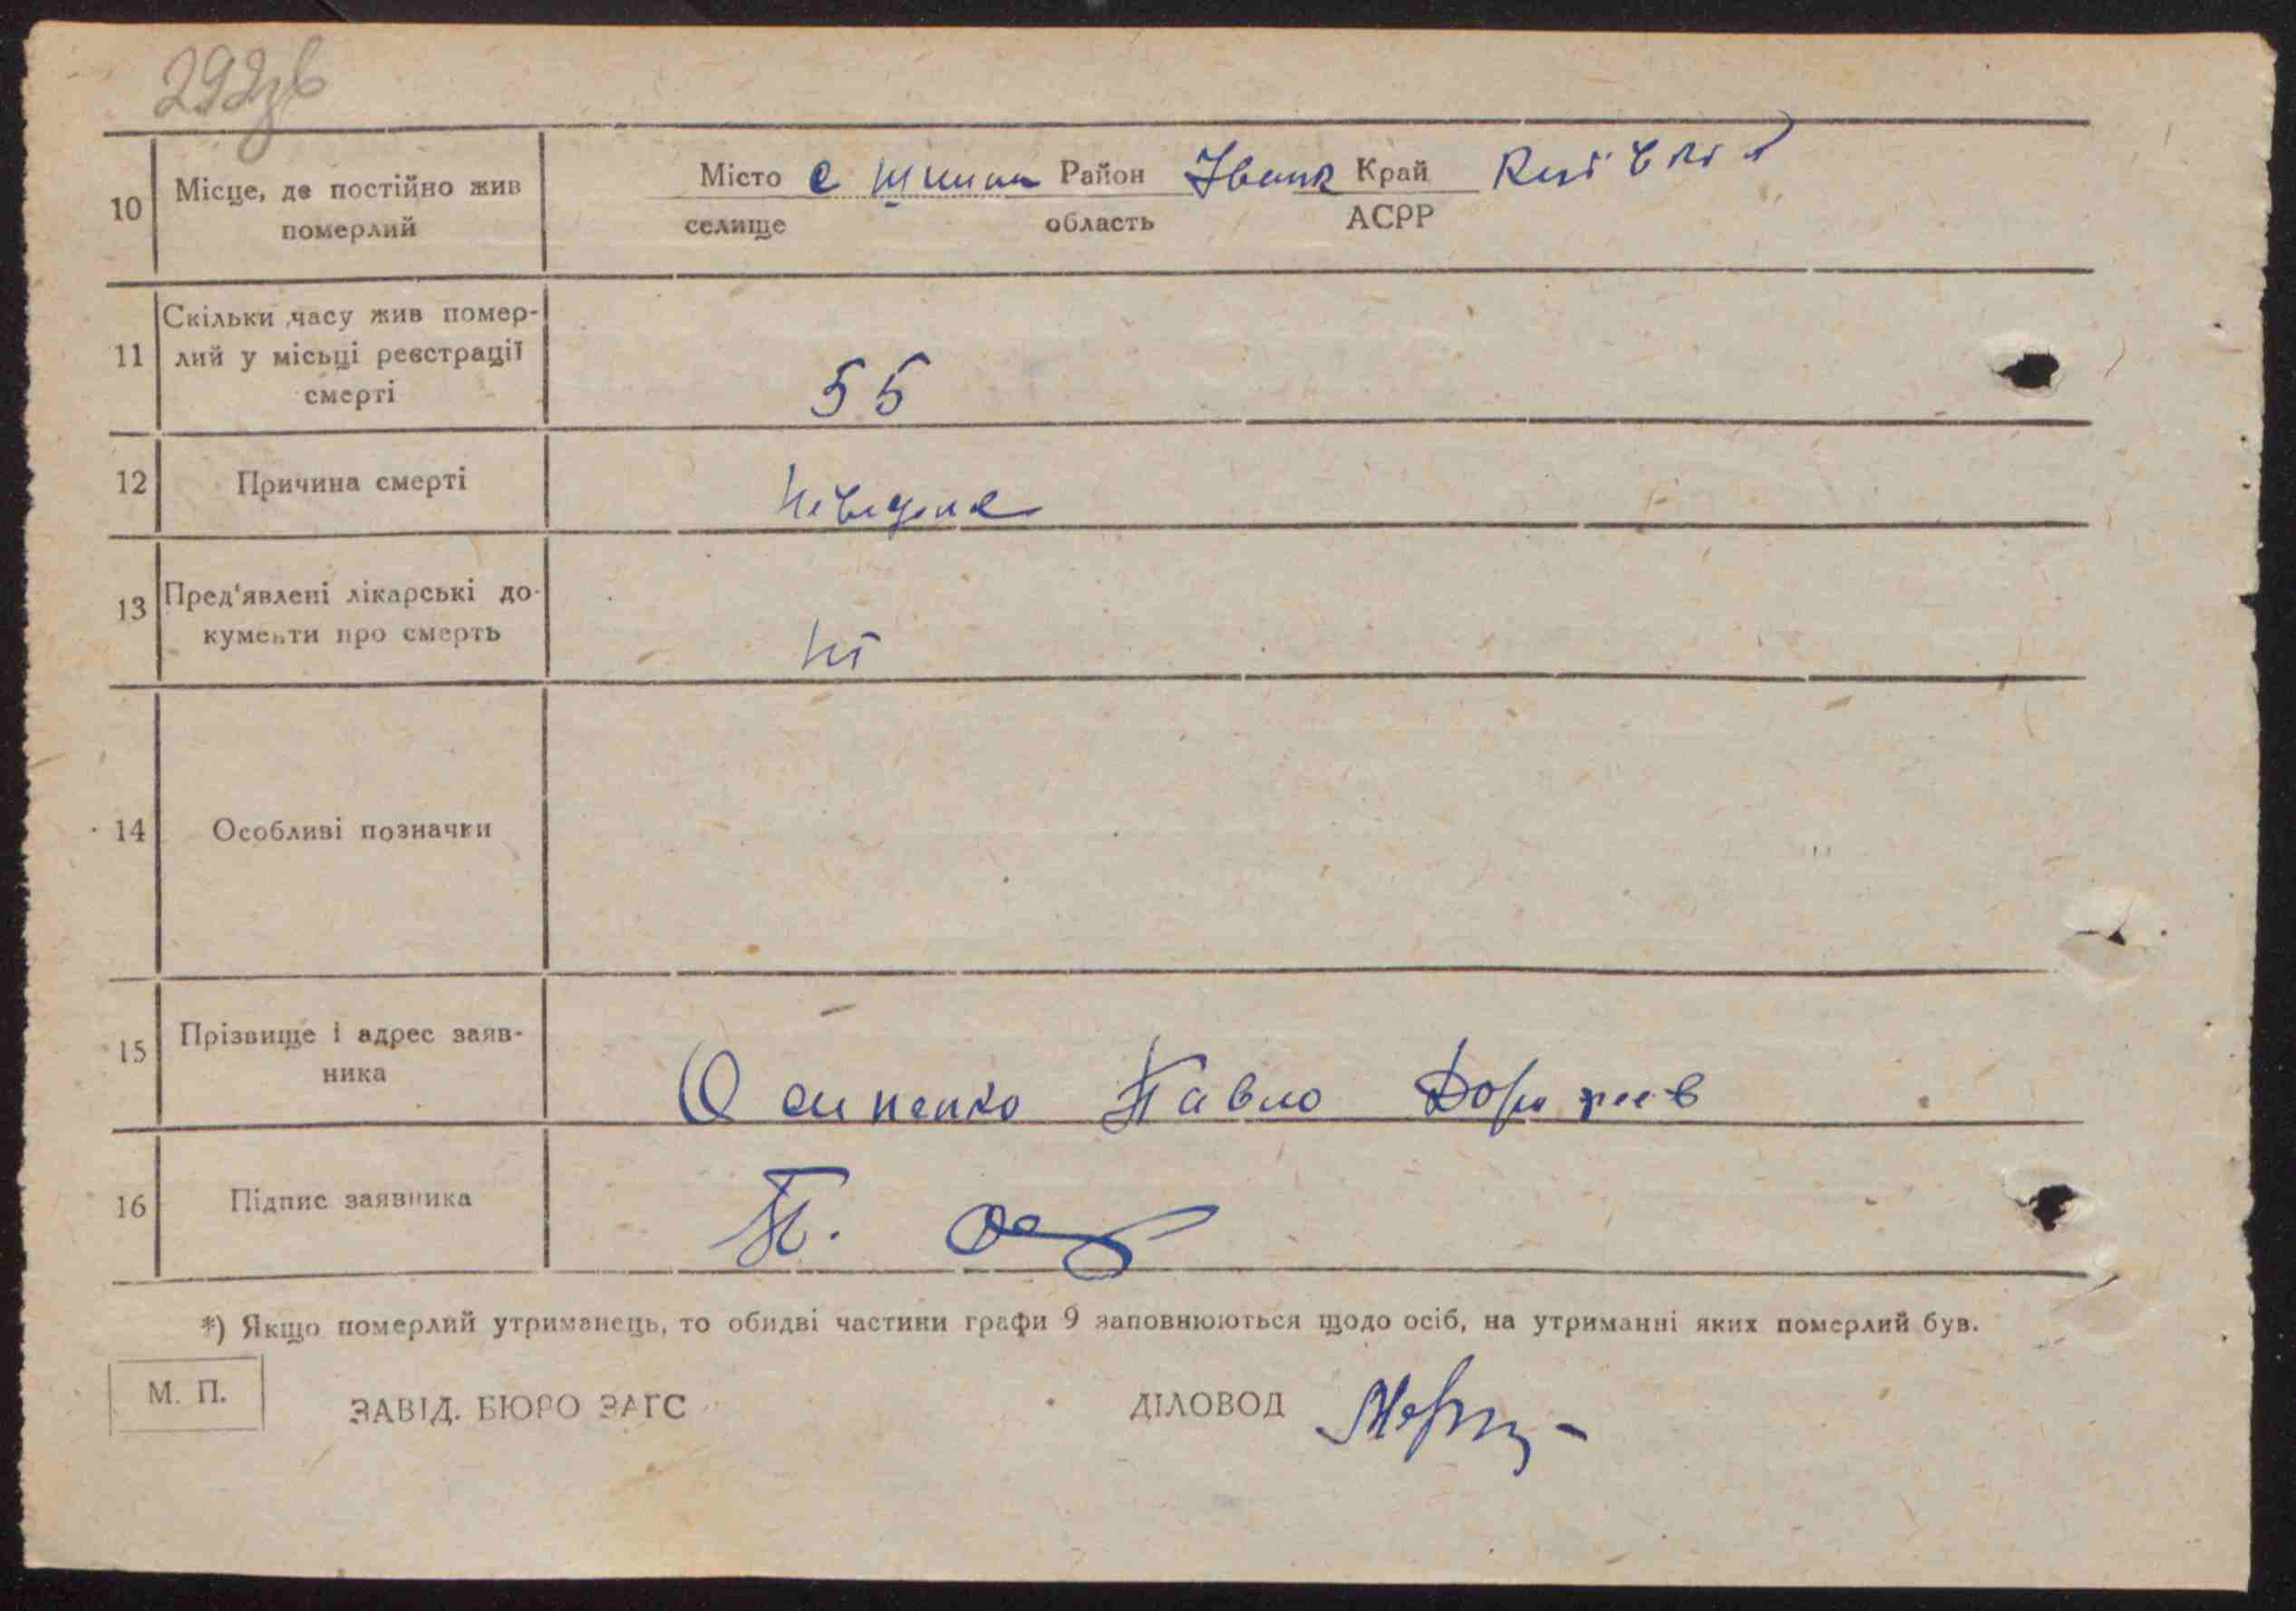 292зв
10 Місце, де постійно жив померлий
Місто с Шпили Район Іванк Край Київськ
селище область АСРР
11 Скільки часу жив помер-
лий у місьці реєстрації
смерті
55
12 Причина смерті
невідома
13 Пред'явлені лікарські до-
кументи про смерть
ні
14 Особливі позначки
15 Прізвище і адрес заяв-
ника
Осипенко Павло
16 Підпис заявника
П.
*) Якщо померлий утриманець, то обидві частини графи 9 заповнюються щодо осіб, на утриманні яких померлий був.
М. П.
ЗАВІД. БЮРО ЗАГС ДІЛОВОД